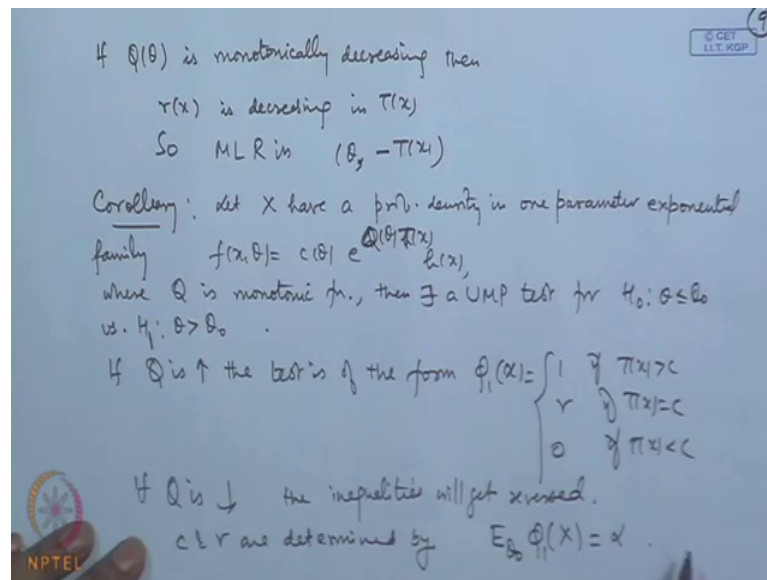 9
© CET
I.I.T. KGP
If Q(θ) is monotonically decreasing then
r(x) is decreasing in T(x)
So MLR in (θ, -T(x))
Corollary: Let X have a prob. density in one parameter exponential
family f(x,θ) = c(θ) e^{Q(θ)T(x)} h(x),
where Q is monotonic fn., then ∃ a UMP test for H₀: θ ≤ θ₀
vs. H₁: θ > θ₀ .
If Q is ↑ the test is of the form φ₁(x) = { 1 if T(x) > c
r if T(x) = c
0 if T(x) < c
If Q is ↓ the inequalities will get reversed.
c & r are determined by E_{θ₀} φ₁(X) = α .
NPTEL